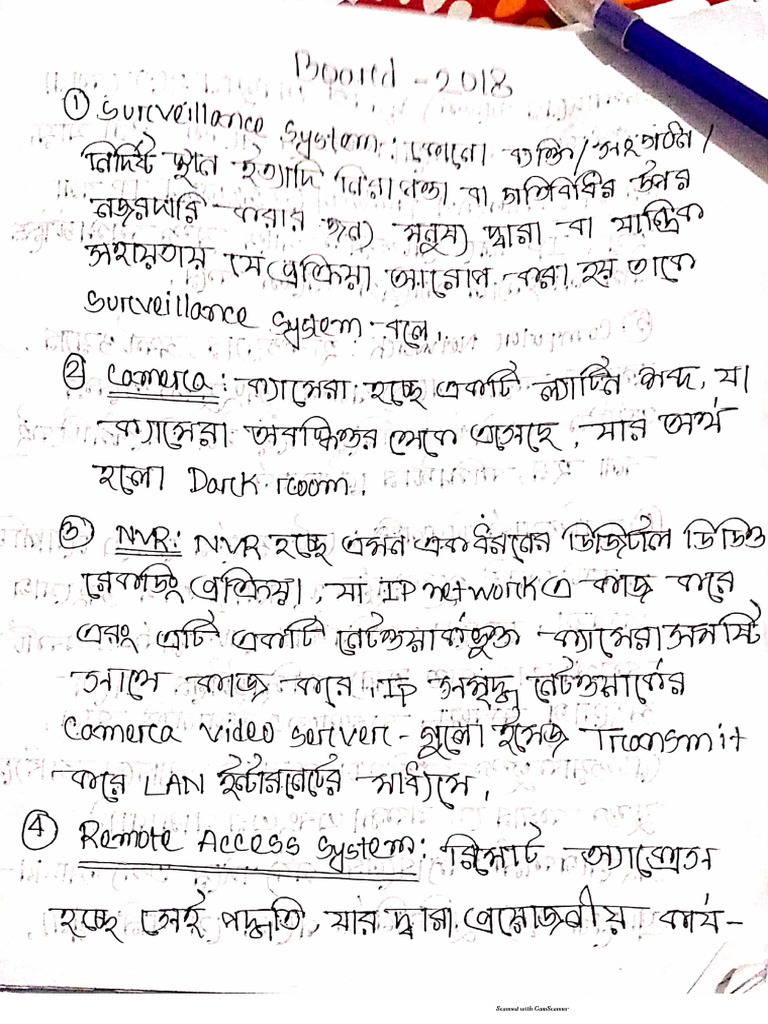 Board - 2018
① Surveillance System: কোনো ব্যক্তি/সংগঠন/
নির্দিষ্ট স্থান ইত্যাদি নিরাপত্তা বা গতিবিধির উপর
নজরদারি করার জন্য মনুষ্য দ্বারা বা যান্ত্রিক
সহায়তায় যে প্রক্রিয়া আরোপ করা হয় তাকে
Surveillance System বলে,
② Camera: ক্যামেরা হচ্ছে একটি ল্যাটিন শব্দ, যা
ক্যামেরা থেকে এসেছে, যার অর্থ
হলো Dark room.
③ NVR: NVR হচ্ছে এমন একধরনের ডিজিটাল ভিডিও
রেকর্ডিং প্রক্রিয়া, যা IP network এ কাজ করে
এবং এটি একটি নেটওয়ার্কভুক্ত ক্যামেরা সমষ্টি
কাজ করে, IP সমৃদ্ধ নেটওয়ার্কের
Camera video server-গুলো ইমেজ Transmit
করে LAN ইন্টারনেটের মাধ্যমে,
④ Remote Access System: রিমোট অ্যাক্সেস
হচ্ছে সেই পদ্ধতি, যার দ্বারা প্রয়োজনীয় কার্য-
Scanned with CamScanner